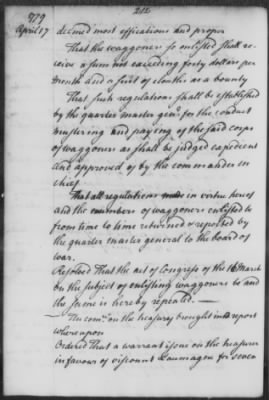 212
979
April 17 deemed most efficatious and proper
That the waggoners so enlisted shall re
ceive a sum not exceeding forty dollars per
month and a suit of cloaths as a bounty
That such regulations shall be established
by the quarter master genl. for the conduct
mustering and paying of the said corps
of waggoners as shall be judged expedient
and approved of by the commander in
chief
That all regulations made in virtue hereof
and the numbers of waggoners enlisted be
from time to time returned & reported by
the quarter master general to the board of
war.
Resolved That the act of Congress of the 16 March
on the subject of enlisting waggoners be and
the same is hereby repealed. —
— The comee. on the treasury brought in a report
whereupon
Ordered that a warrant issue on the treasurer
in favour of viscount Mauroy for seven